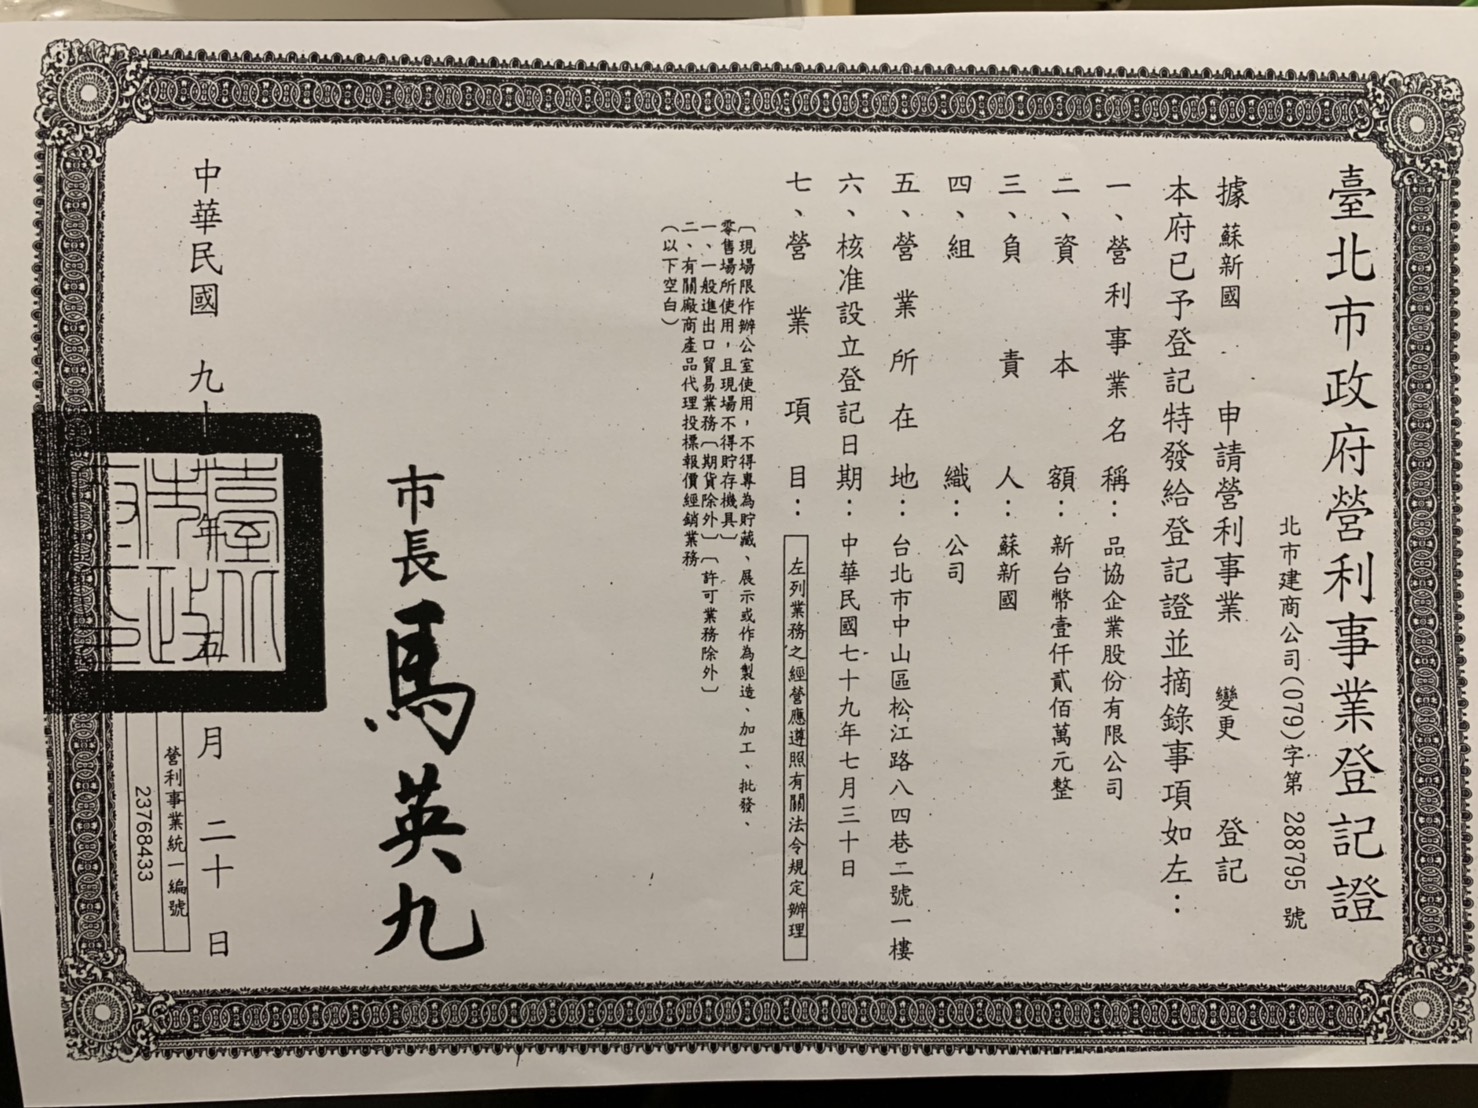 臺北市政府營利事業登記證
北市建商公司(079)字第 288795 號
據 蘇新國 申請營利事業 變更 登記
本府已予登記特發給登記證並摘錄事項如左：
一、營利事業名稱：品協企業股份有限公司
二、資本額：新台幣壹仟貳佰萬元整
三、負責人：蘇新國
四、組織：公司
五、營業所在地：台北市中山區松江路八四巷二號一樓
六、核准設立登記日期：中華民國七十九年七月三十日
七、營業項目：左列業務之經營應遵照有關法令規定辦理
〔現場限作辦公室使用，不得專為貯藏、展示或作為製造、加工、批發、
零售場所使用，且現場不得貯存機具〕
一、一般進出口貿易業務〔期貨除外〕〔許可業務除外〕
二、有關廠商產品代理投標報價經銷業務
（以下空白）
市長 馬英九
中華民國 九十 年 五 月 二十 日
臺北市政府印
營利事業統一編號
23768433